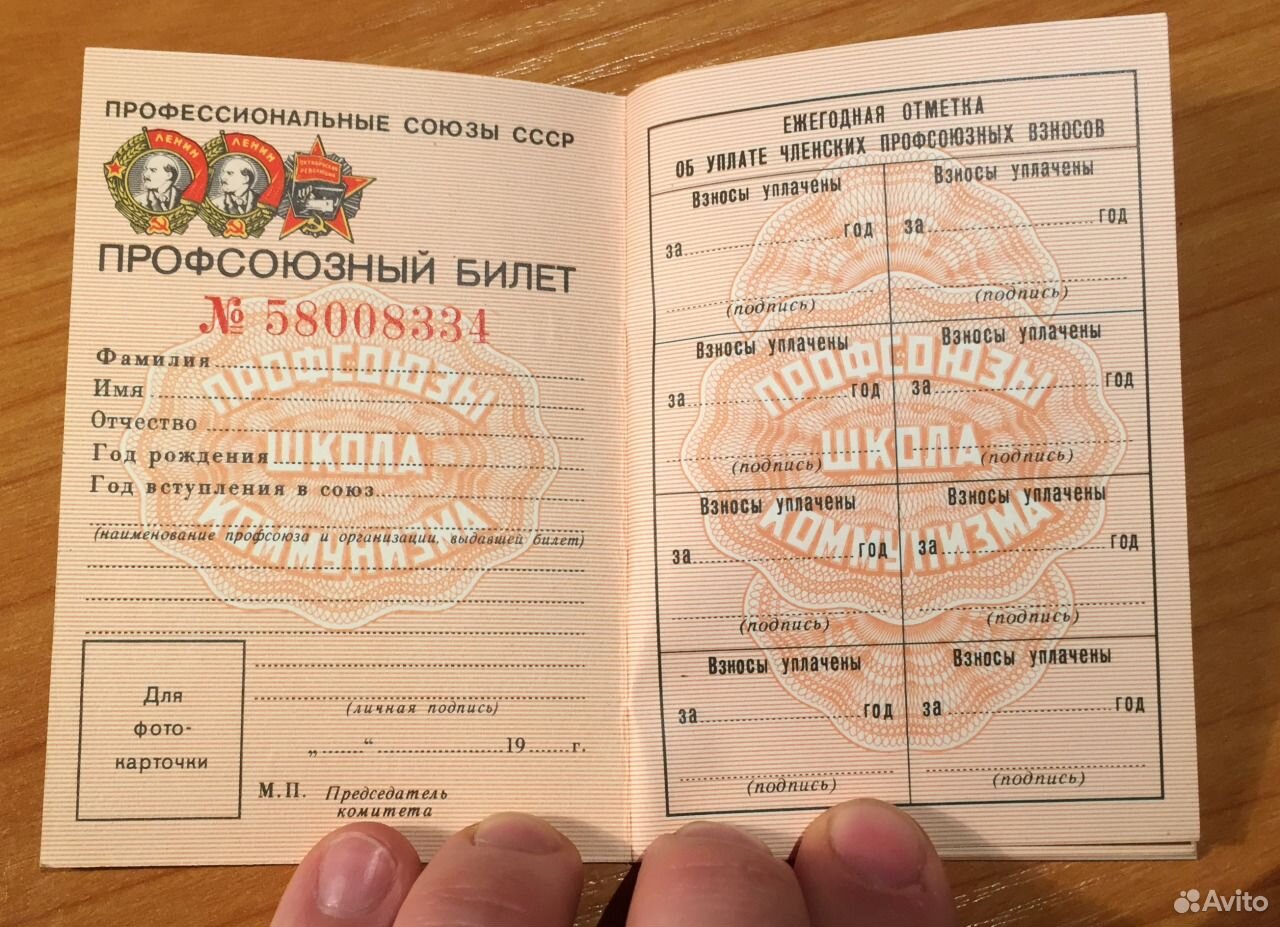 ПРОФЕССИОНАЛЬНЫЕ СОЮЗЫ СССР
ЛЕНИН ЛЕНИН ОКТЯБРЬСКАЯ РЕВОЛЮЦИЯ
ПРОФСОЮЗНЫЙ БИЛЕТ
№ 58008334
Фамилия
Имя
Отчество
Год рождения
Год вступления в союз
(наименование профсоюза и организации, выдавшей билет)
ПРОФСОЮЗЫ
ШКОЛА
КОММУНИЗМА
Для
фото-
карточки
(личная подпись)
„ “ 19 г.
М.П. Председатель
комитета
ЕЖЕГОДНАЯ ОТМЕТКА
ОБ УПЛАТЕ ЧЛЕНСКИХ ПРОФСОЮЗНЫХ ВЗНОСОВ
Взносы уплачены Взносы уплачены
за год за год
(подпись) (подпись)
Взносы уплачены Взносы уплачены
за год за год
(подпись) (подпись)
Взносы уплачены Взносы уплачены
за год за год
(подпись) (подпись)
Взносы уплачены Взносы уплачены
за год за год
(подпись) (подпись)
ПРОФСОЮЗЫ
ШКОЛА
КОММУНИЗМА
Avito